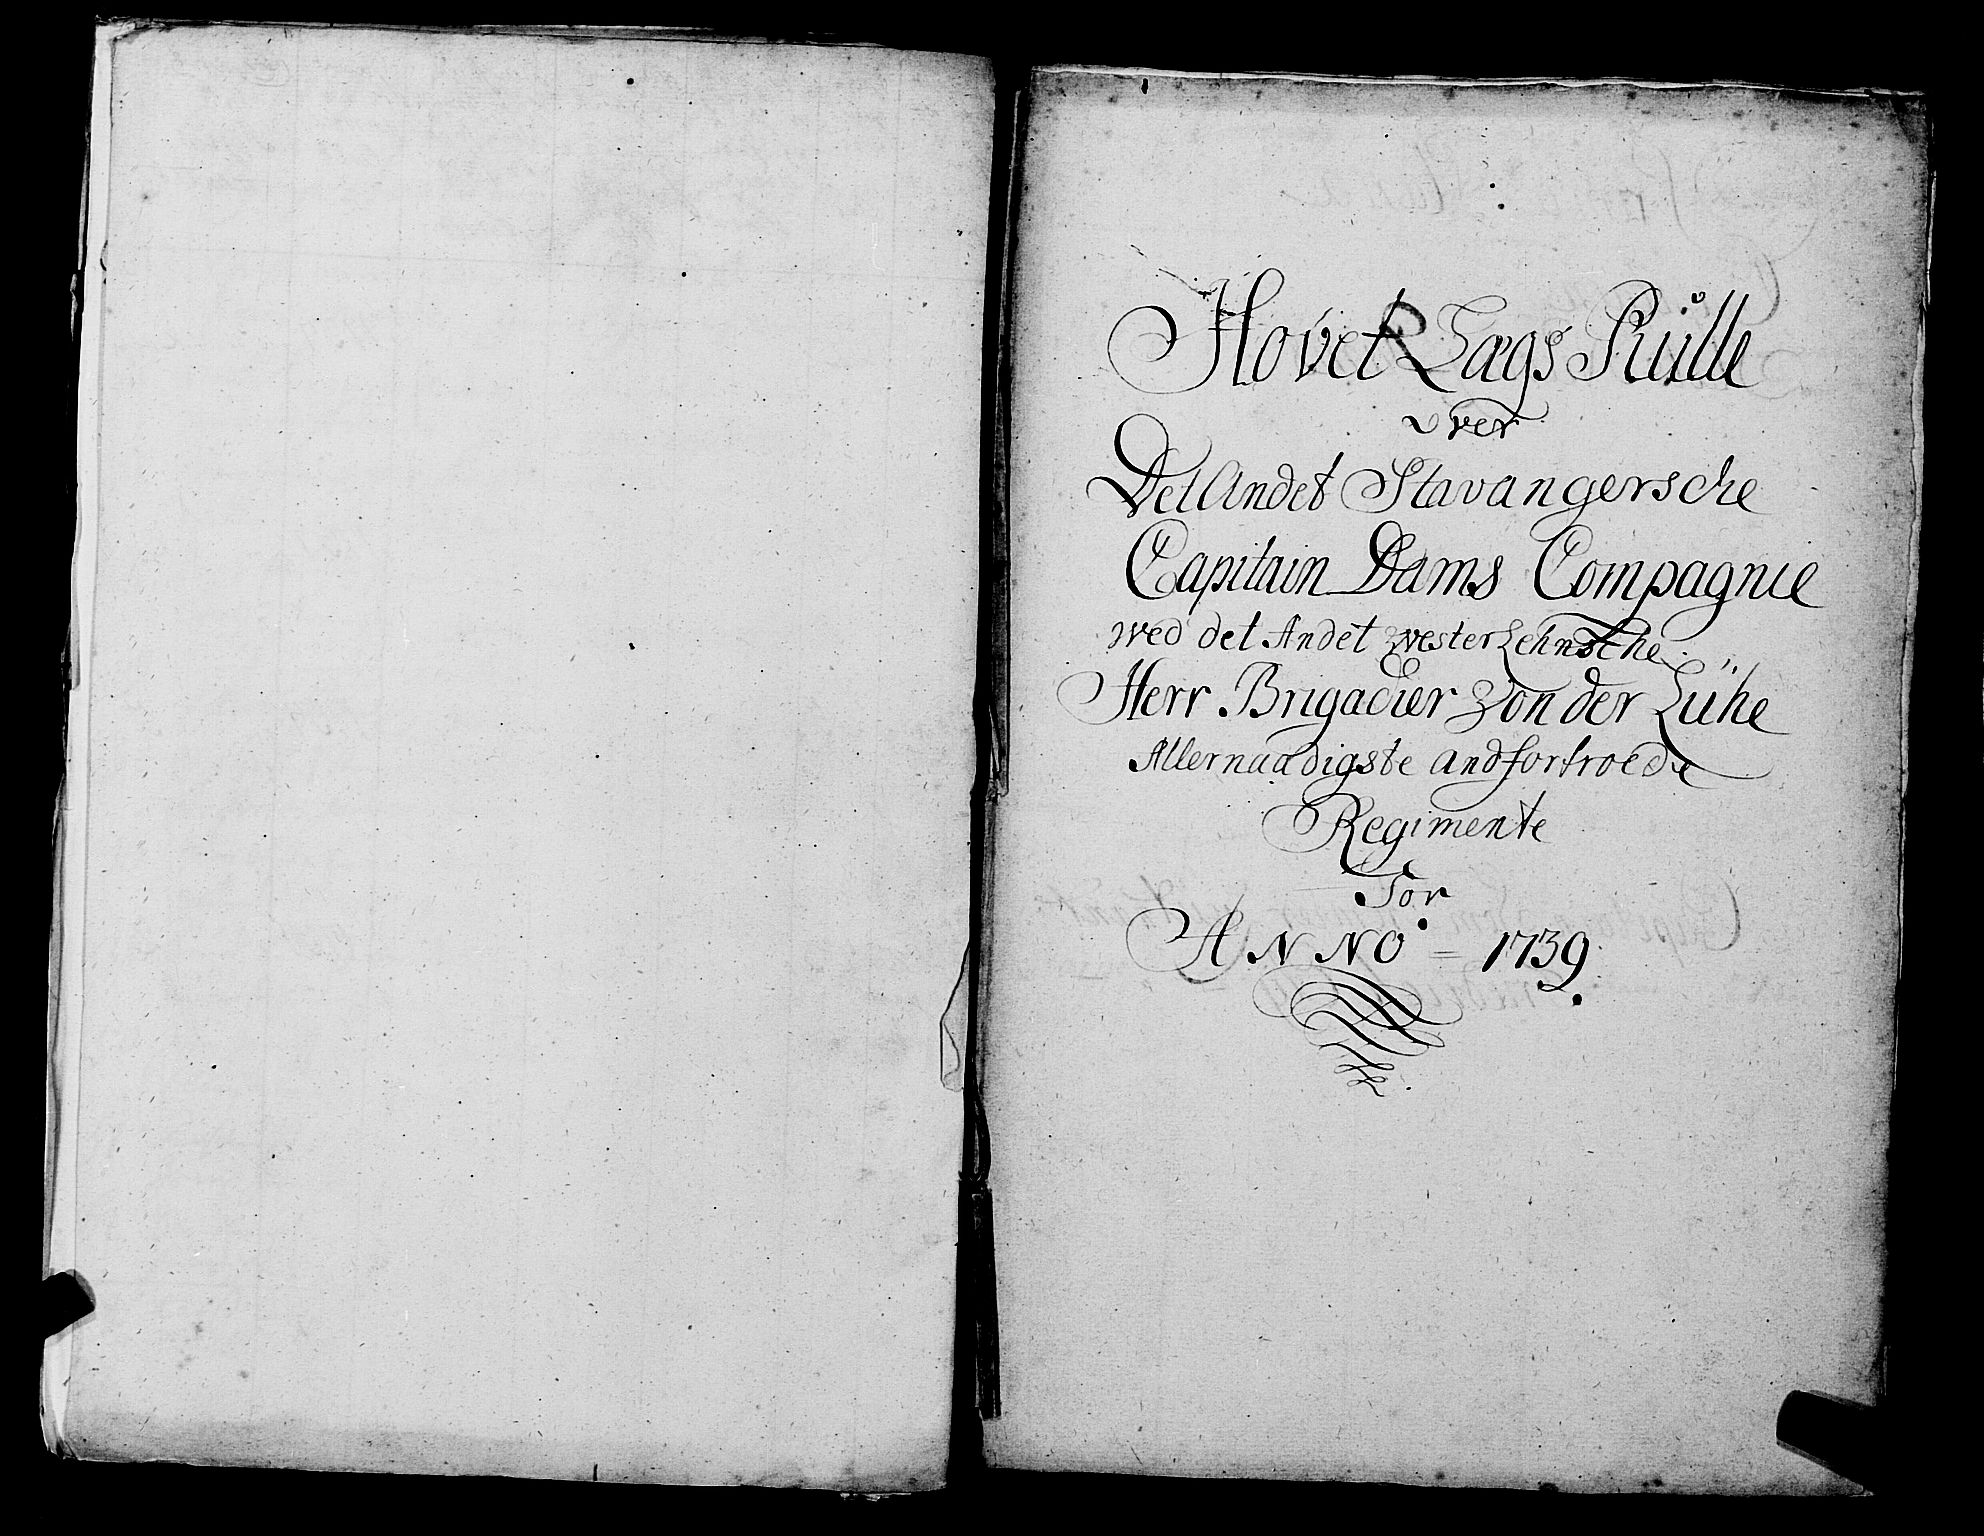 Hovet Lægs Rulle
over
Det Andet Stavangersche
Capitain Dams Compagnie
wed det Andet westerLehnsche
Herr Brigadier von der Lühe
Allernaadigste andfortroede
Regimente
For
ANNO = 1739.